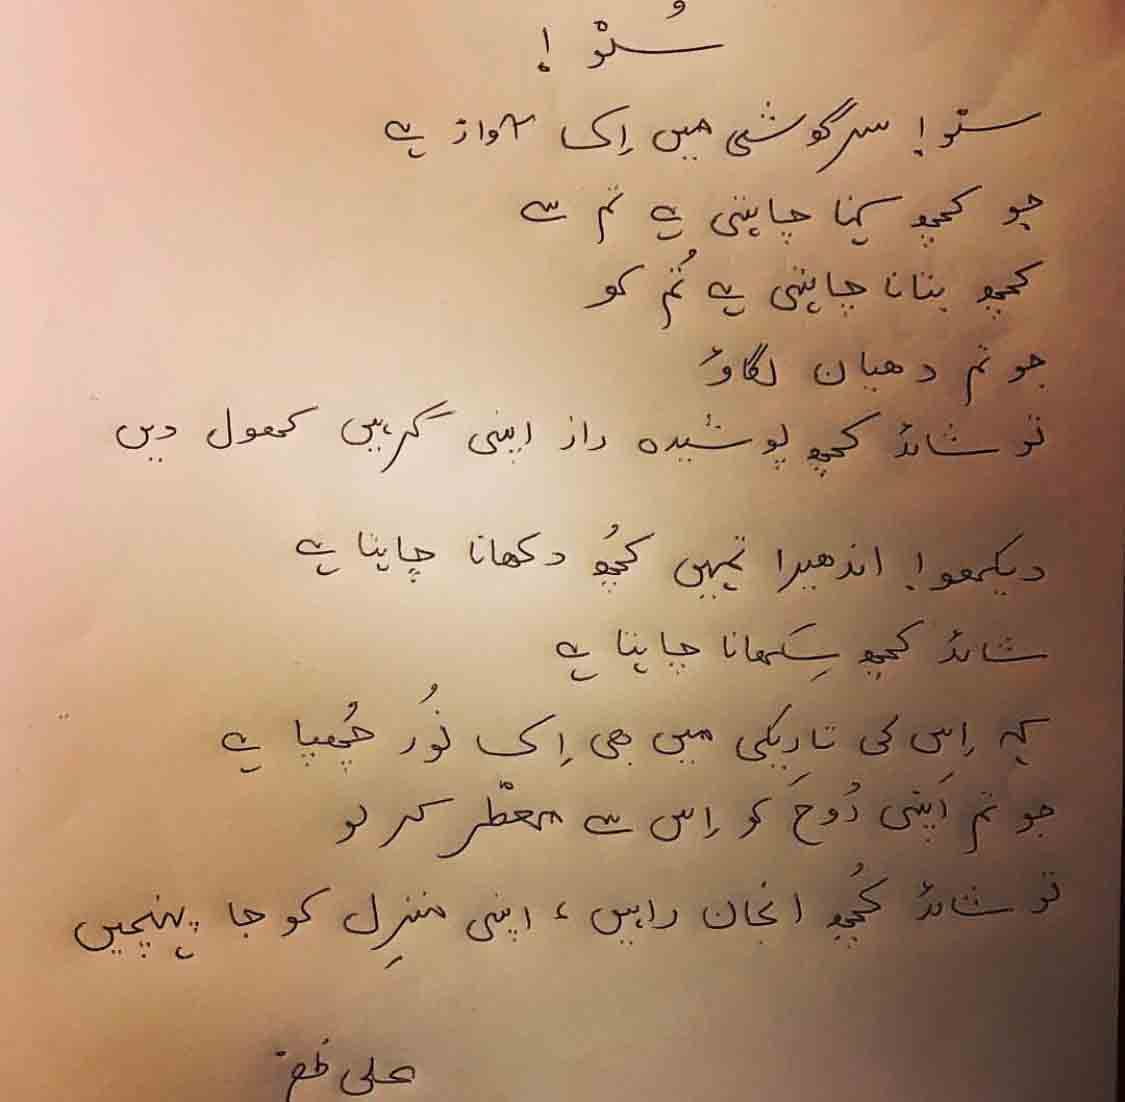 سُنو !
سنو ! سرگوشی میں اِک آواز ہے
جو کچھ کہنا چاہتی ہے تم سے
کچھ بتانا چاہتی ہے تُم کو
جو تم دھیان لگاؤ
تو شائد کچھ پوشیدہ راز اپنی گرہیں کھول دیں
دیکھو ! اندھیرا تمہیں کُچھ دکھانا چاہتا ہے
شائد کچھ سِکھانا چاہتا ہے
کہ اِس کی تارِیکی میں بھی اِک نُور چُھپا ہے
جو تم اَپنی رُوح کو اِس سے معطّر کر لو
تو شائد کُچھ انجان راہیں ، اپنی منزِل کو جا پہنچیں
علی ظفر